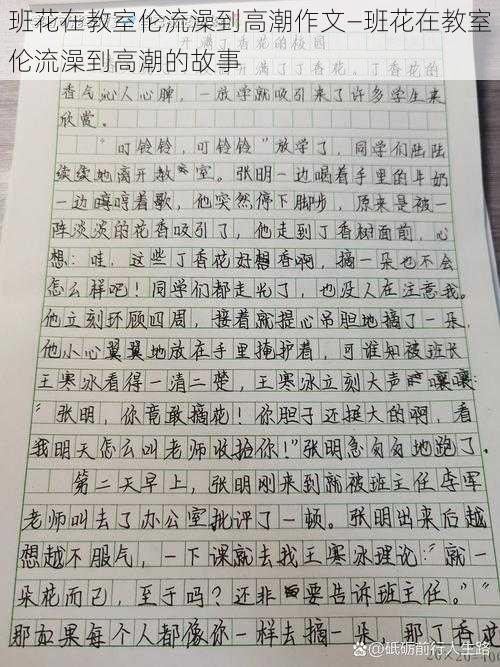 班花在教室伦流澡到高潮作文—班花在教室
伦流澡到高潮的故事
开满丁香花的校园
开满了丁香花。丁香花的
香气沁人心脾，一放学就吸引来了许多学生来
欣赏。
“叮铃铃，叮铃铃”放学了，同学们陆陆
续续地离开教室。张明一边喝着手里的牛奶
一边哼哼着歌，他突然停下脚步，原来是被一
阵淡淡的花香吸引了，他走到丁香树面前，心
想：哇，这些丁香花好想香啊，摘一朵也不会
怎么样吧！同学们都走光了，也没人在注意我。
他立刻环顾四周，接着就提心吊胆地摘了一朵，
他小心翼翼地放在手里掩护着，可谁知被班长
王寒冰看得一清二楚，王寒冰立刻大声嚷嚷：
“张明，你竟敢摘花！你胆子还挺大的啊，看
我明天怎么叫老师收拾你！”张明急匆匆地跑了。
第二天早上，张明刚来到就被班主任李军
老师叫去了办公室批评了一顿。张明出来后越
想越不服气，一下课就去找王寒冰理论：“就一
朵花而已，至于吗？还非要告诉班主任。”“
那如果每个人都像你一样去摘一朵，那丁香或
头条 @砥砺前行人生路